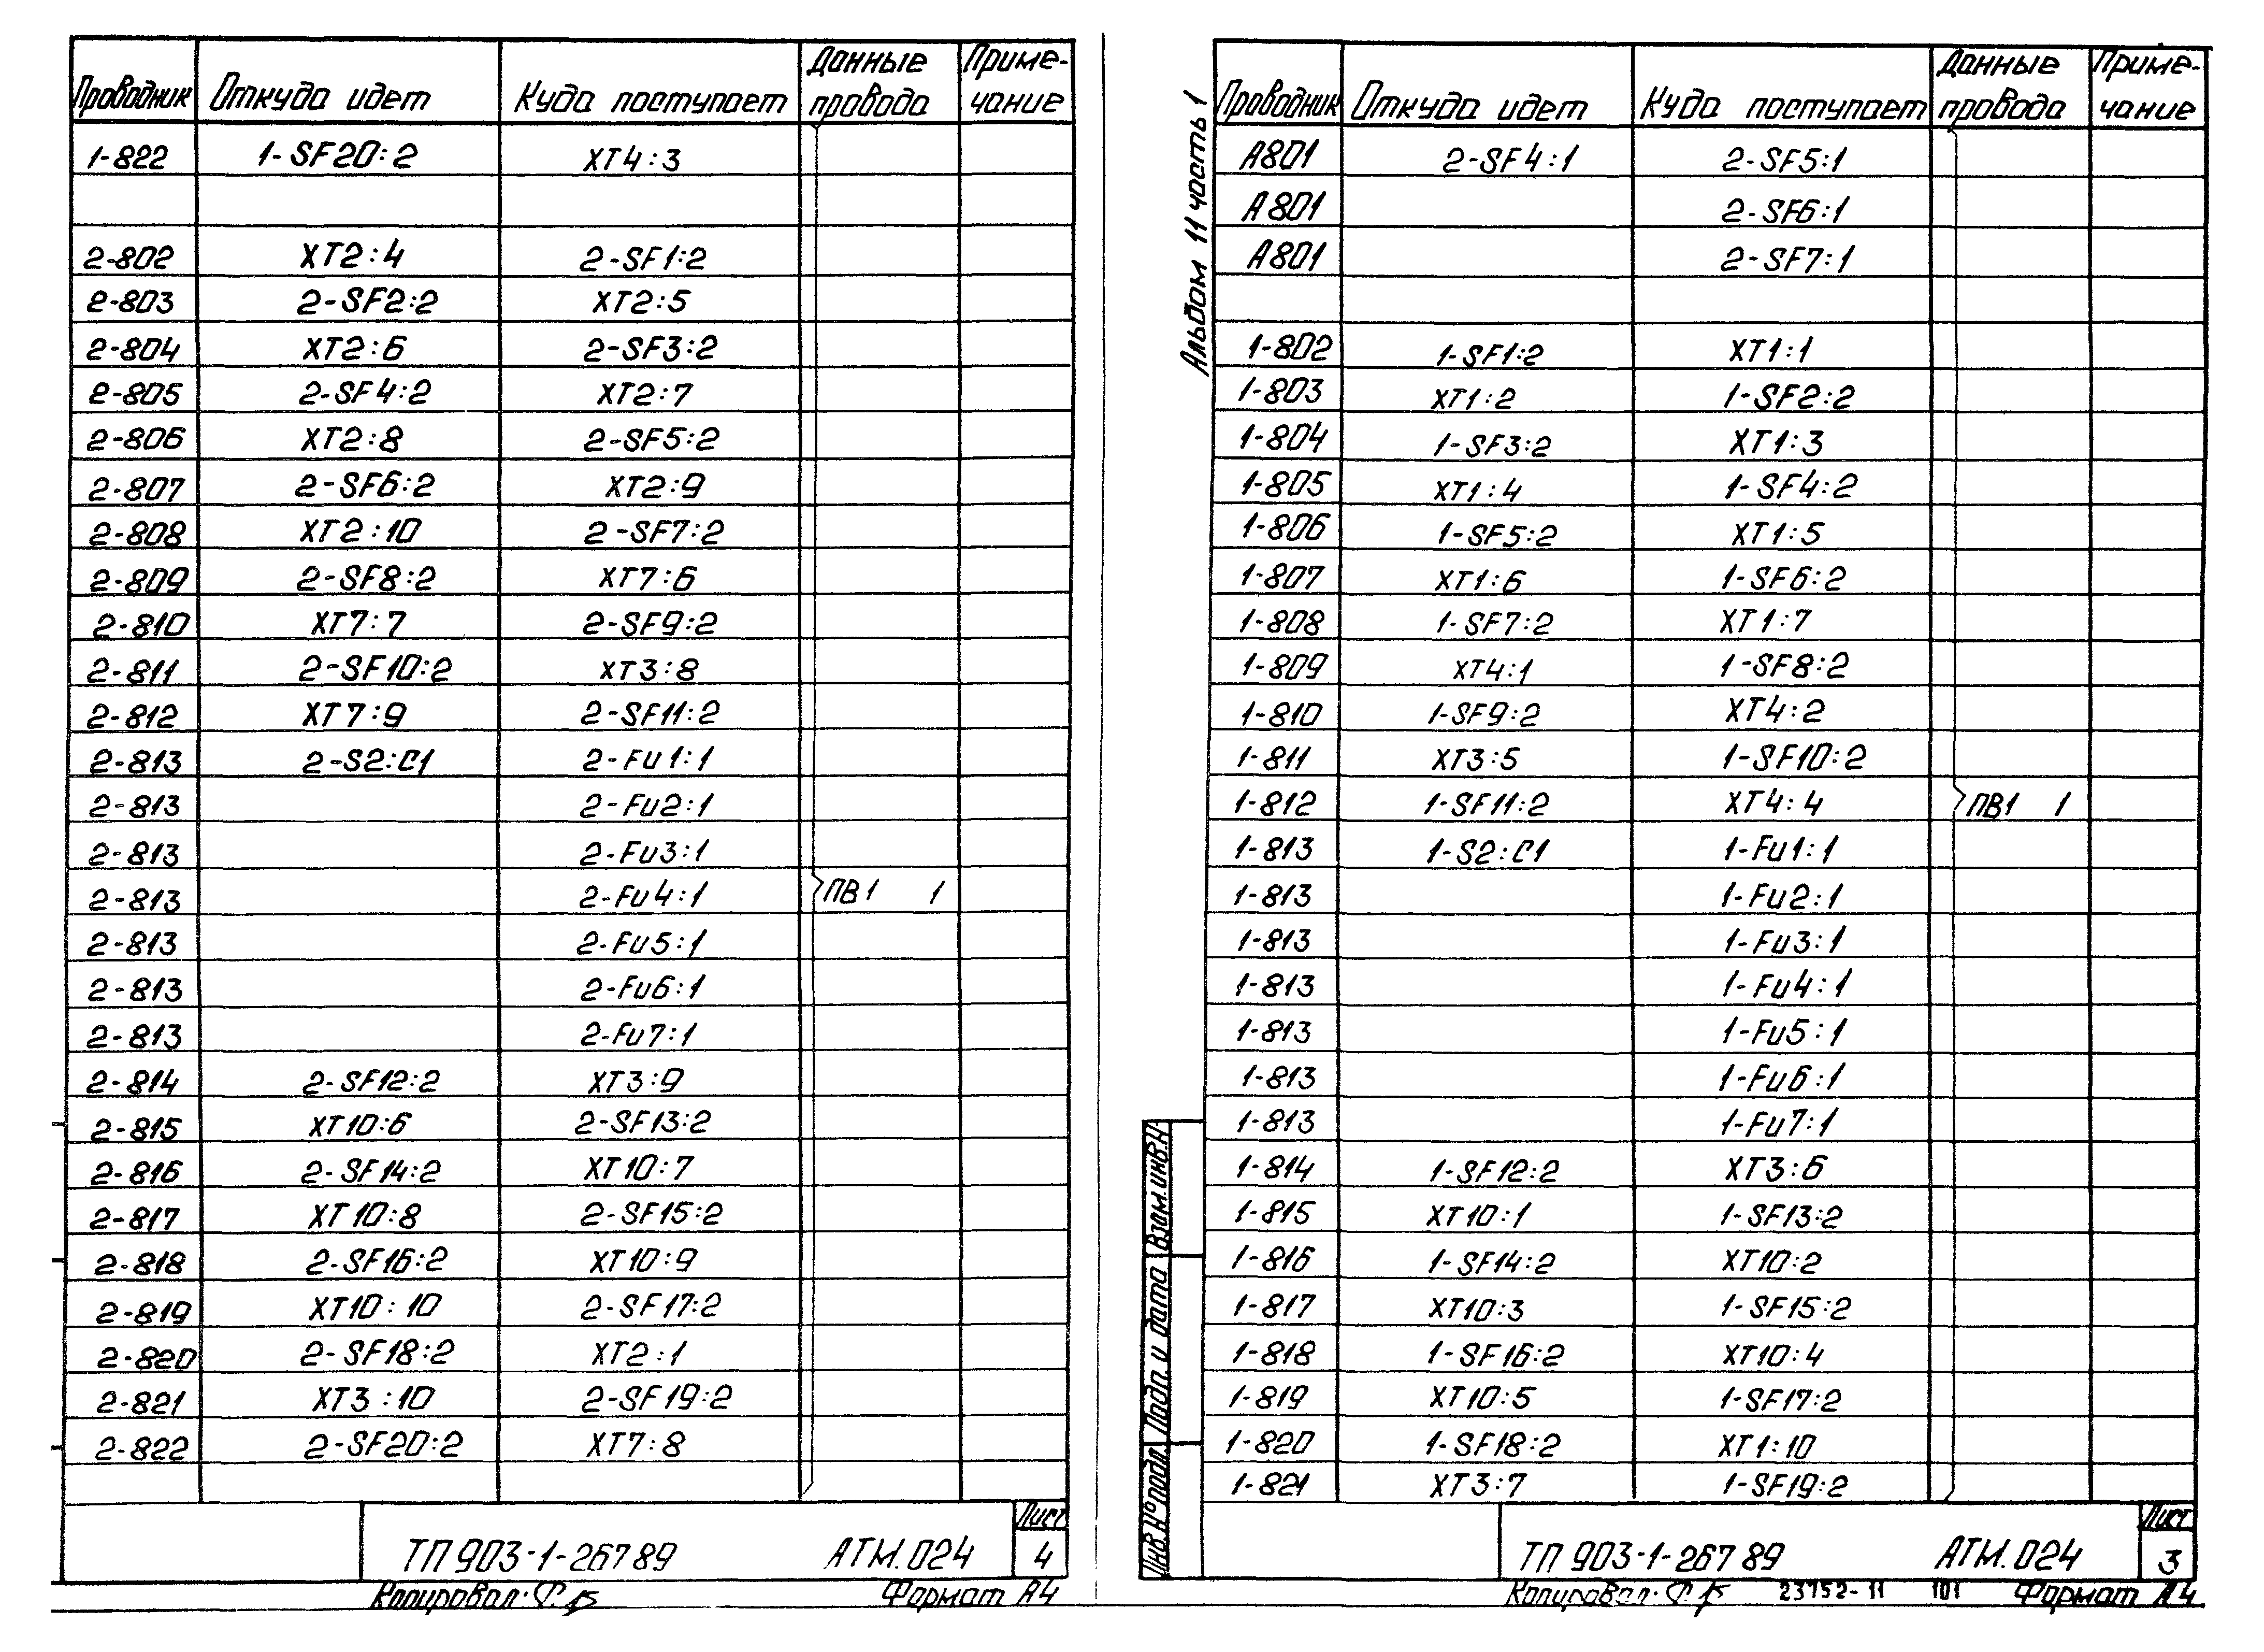 Проводник Откуда идет Куда поступает Данные провода Приме-чание
1-822 1-SF20:2 XT4:3
2-802 XT2:4 2-SF1:2
2-803 2-SF2:2 XT2:5
2-804 XT2:6 2-SF3:2
2-805 2-SF4:2 XT2:7
2-806 XT2:8 2-SF5:2
2-807 2-SF6:2 XT2:9
2-808 XT2:10 2-SF7:2
2-809 2-SF8:2 XT7:6
2-810 XT7:7 2-SF9:2
2-811 2-SF10:2 XT3:8
2-812 XT7:9 2-SF11:2
2-813 2-S2:C1 2-Fu1:1
2-813 2-Fu2:1
2-813 2-Fu3:1
2-813 2-Fu4:1 ПВ1 1
2-813 2-Fu5:1
2-813 2-Fu6:1
2-813 2-Fu7:1
2-814 2-SF12:2 XT3:9
2-815 XT10:6 2-SF13:2
2-816 2-SF14:2 XT10:7
2-817 XT10:8 2-SF15:2
2-818 2-SF16:2 XT10:9
2-819 XT10:10 2-SF17:2
2-820 2-SF18:2 XT2:1
2-821 XT3:10 2-SF19:2
2-822 2-SF20:2 XT7:8
Лист
ТП 903-1-267 89 АТМ.024 4
Копировал: Формат А4
Альбом 11 часть 1
Проводник Откуда идет Куда поступает Данные провода Приме-чание
А801 2-SF4:1 2-SF5:1
А801 2-SF6:1
А801 2-SF7:1
1-802 1-SF1:2 XT1:1
1-803 XT1:2 1-SF2:2
1-804 1-SF3:2 XT1:3
1-805 XT1:4 1-SF4:2
1-806 1-SF5:2 XT1:5
1-807 XT1:6 1-SF6:2
1-808 1-SF7:2 XT1:7
1-809 XT4:1 1-SF8:2
1-810 1-SF9:2 XT4:2
1-811 XT3:5 1-SF10:2
1-812 1-SF11:2 XT4:4 ПВ1 1
1-813 1-S2:C1 1-Fu1:1
1-813 1-Fu2:1
1-813 1-Fu3:1
1-813 1-Fu4:1
1-813 1-Fu5:1
1-813 1-Fu6:1
1-813 1-Fu7:1
1-814 1-SF12:2 XT3:6
1-815 XT10:1 1-SF13:2
1-816 1-SF14:2 XT10:2
1-817 XT10:3 1-SF15:2
1-818 1-SF16:2 XT10:4
1-819 XT10:5 1-SF17:2
1-820 1-SF18:2 XT1:10
1-821 XT3:7 1-SF19:2
Взам.инв.№
Подп. и дата
Инв.№ подл.
Лист
ТП 903-1-267 89 АТМ.024 3
Копировал: 23752-11 101 Формат А4